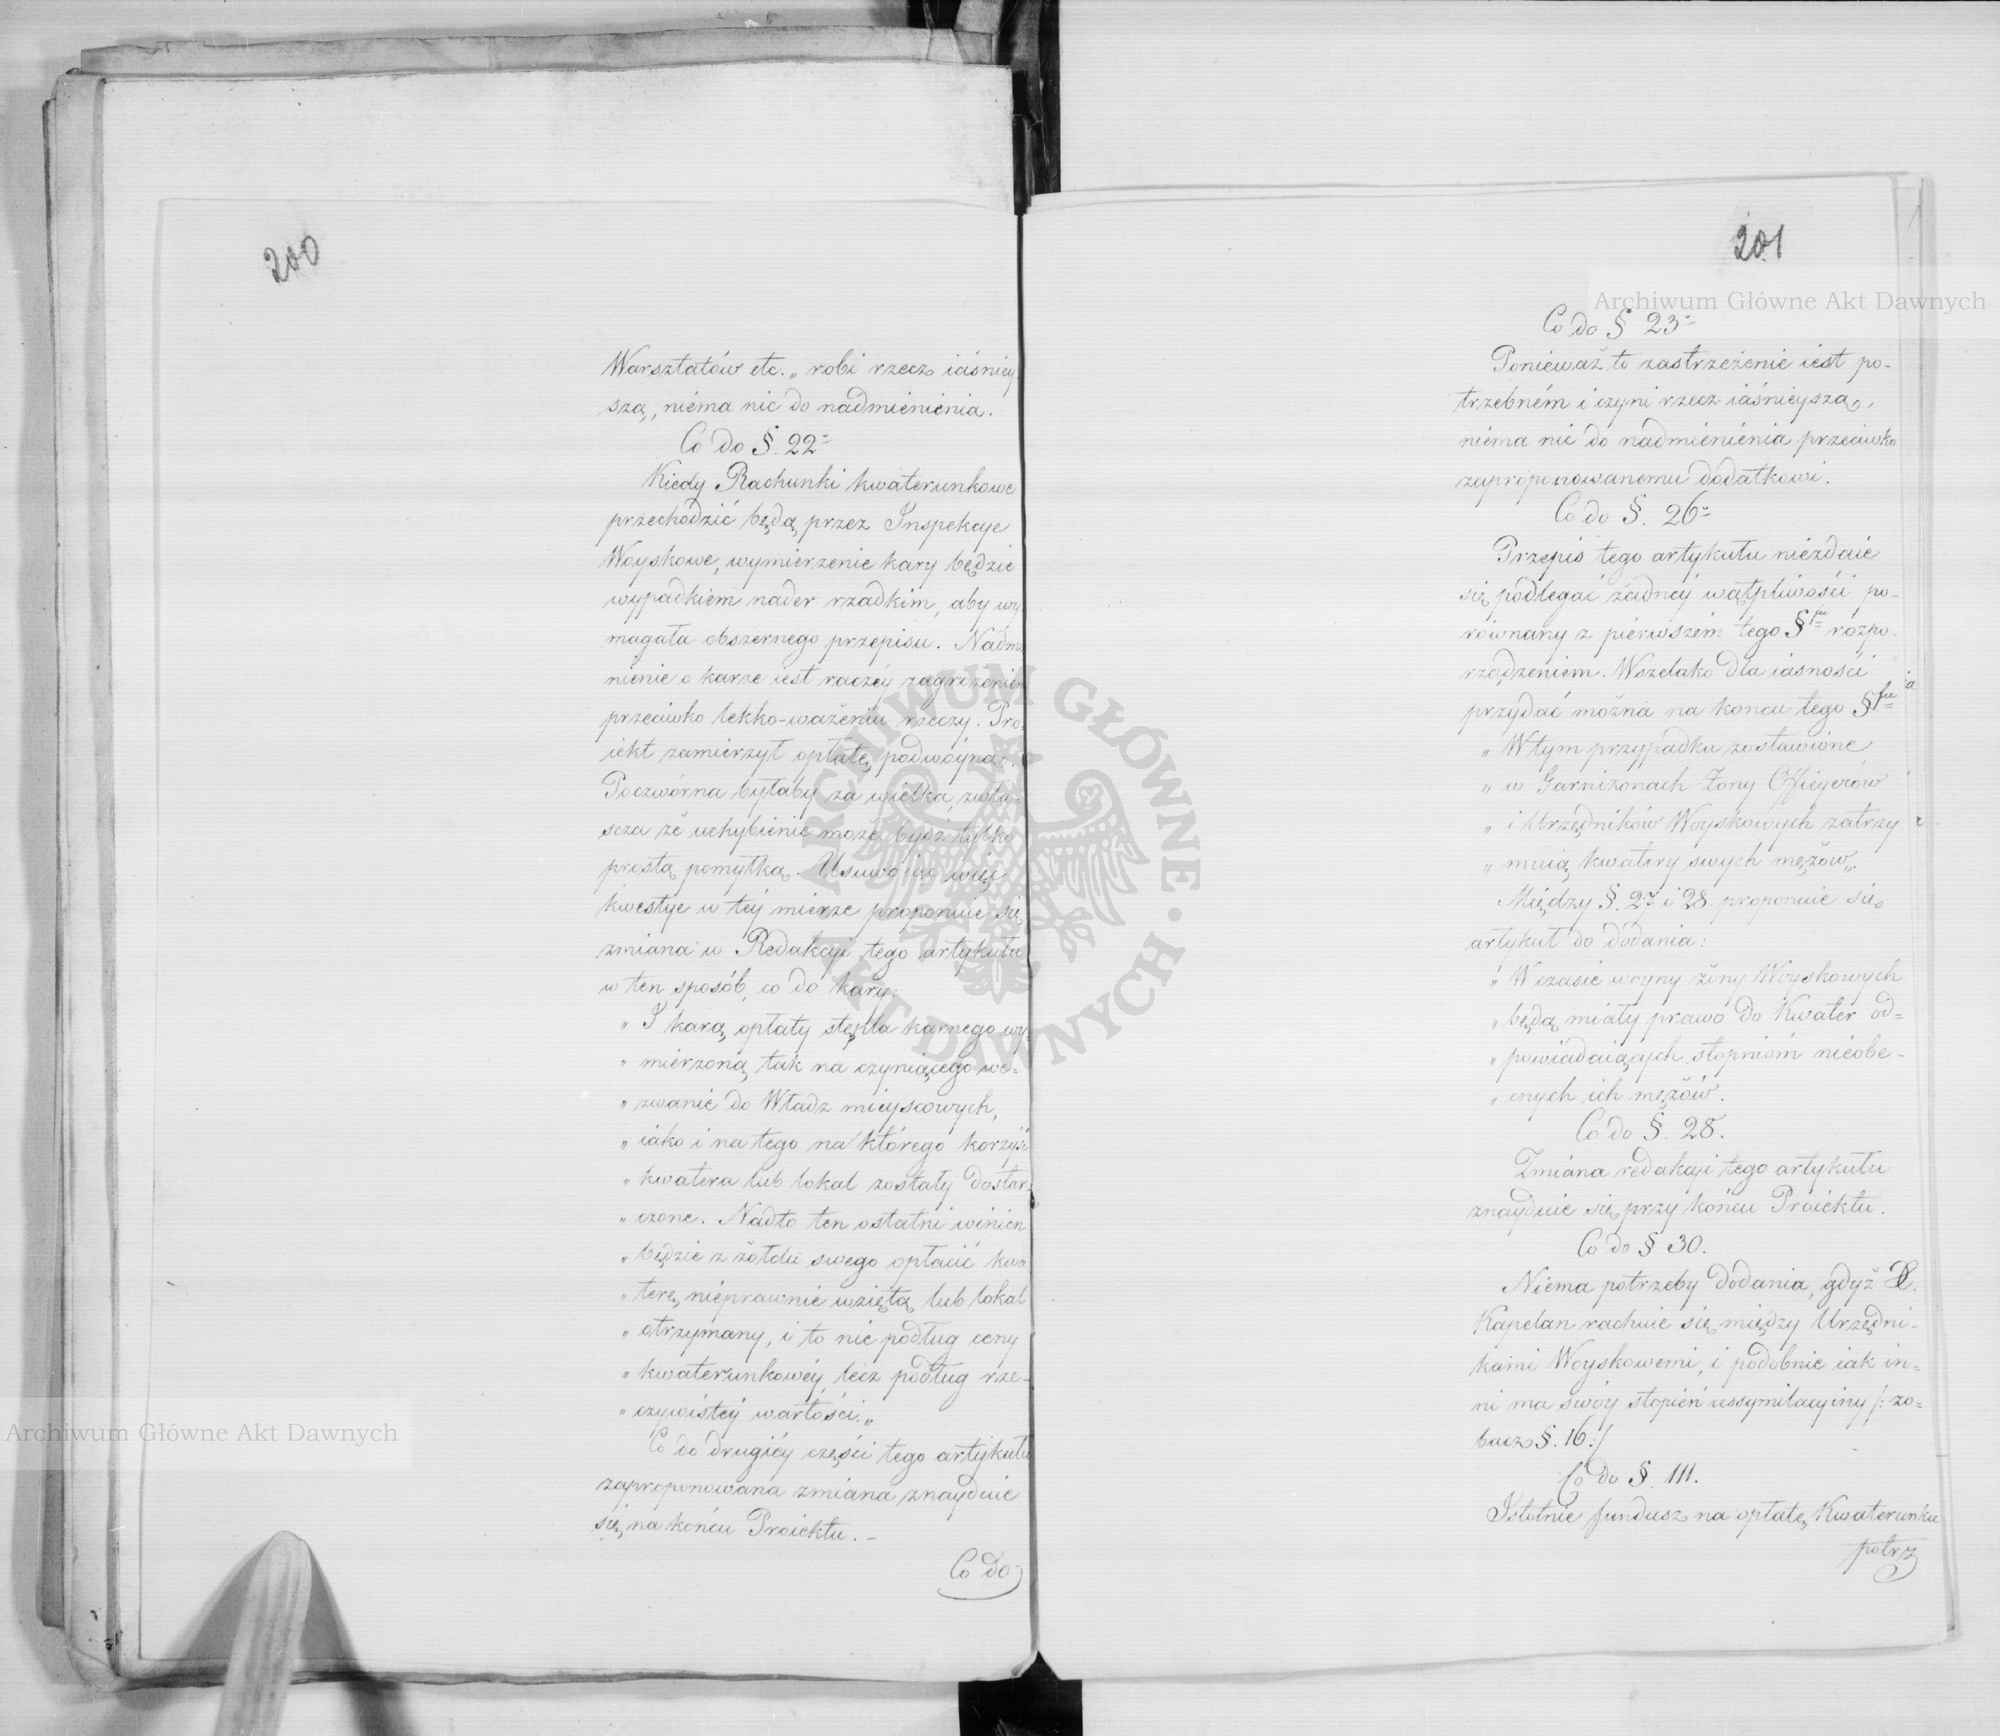 200
Warsztatów etc. „ robi rzecz iáśniey
szą, niéma nic do nadmiénienia.
Co do §. 22º
Kiedy Rachunki kwaterunkowe
przechodzić będą przez Inspekcye
Woyskowe, wymierzenie kary będzie
wypadkiem nader rzadkim, aby wy
magała obszernego przepisu. Nadm
nienie o karze iest raczéy zagrożeniem
przeciwko lekko-ważeniu rzeczy. Pro
iekt zamierzył opłatę podwóyną.
Poczwórna byłaby za wielka, zwła=
scza że uchybienie może bydź tylko
prostą pomyłką. Usuwaiąc więc
kwestye w téy mierze proponuie się
zmiana w Redakcyi tego artykułu
w ten sposób, co do kary:
„ I karą opłaty stępla karnego wy=
„ mierzoną tak na czyniącego we=
„ zwanie do Władz mieyscowych,
„ iako i na tego na którego korzyść
„ kwatera lub lokal zostały dostar
„ czone. Nadto ten ostatni winien
„ będzie z żołdu swego opłacić kwa
„ terę nieprawnie wziętą lub lokal
„ otrzymany, i to nie podług ceny
„ kwaterunkowéy lecz podług rze-
„ czywistéy wartości. „
Co do drugiéy części tego artykułu
zaproponowana zmiana znayduie
się na końcu Proiektu. —
Co do
201
Co do § 23º
Ponieważ to zastrzeżenie iest po-
trzebném i czyni rzecz iáśnieyszą,
niéma nic do nadmiénienia przeciwko
zaproponowanemu dodatkowi.
Co do §. 26º
Przepis tego artykułu niezdaie
się podlegać żadnéy wątpliwości po-
równany z piérwszém tego §fu rozpo-
rządzeniem. Wszelako dla iasności
przydać można na końcu tego §fu
„ W tym przypadku zostawione
„ w Garnizonach Żony Officyerów
„ i Urzędników Woyskowych zatrzy
„ muią kwatery swych mężów „.
Między §. 27 i 28. proponuie się
artykuł do dodania:
„ W czasie woyny żony Woyskowych
„ będą miały prawo do Kwater od=
„ powiadaiących stopniom nieobe-
„ cnych ich mężów.
Co do §. 28.
Zmiana redakcyi tego artykułu
znayduie się przy końcu Proiektu.
Co do § 30.
Niema potrzeby dodania, gdyż X.
Kapelan rachuie się między Urzędni-
kami Woyskowemi, i podobnie iak in=
ni ma swóy stopień assymilacyiny /: zo=
bacz §. 16 :/
Co do §. 111.
Istotnie fundusz na opłatę Kwaterunku
potrz
Archiwum Główne Akt Dawnych
Archiwum Główne Akt Dawnych
ARCHIWUM GŁÓWNE · AKT DAWNYCH ·